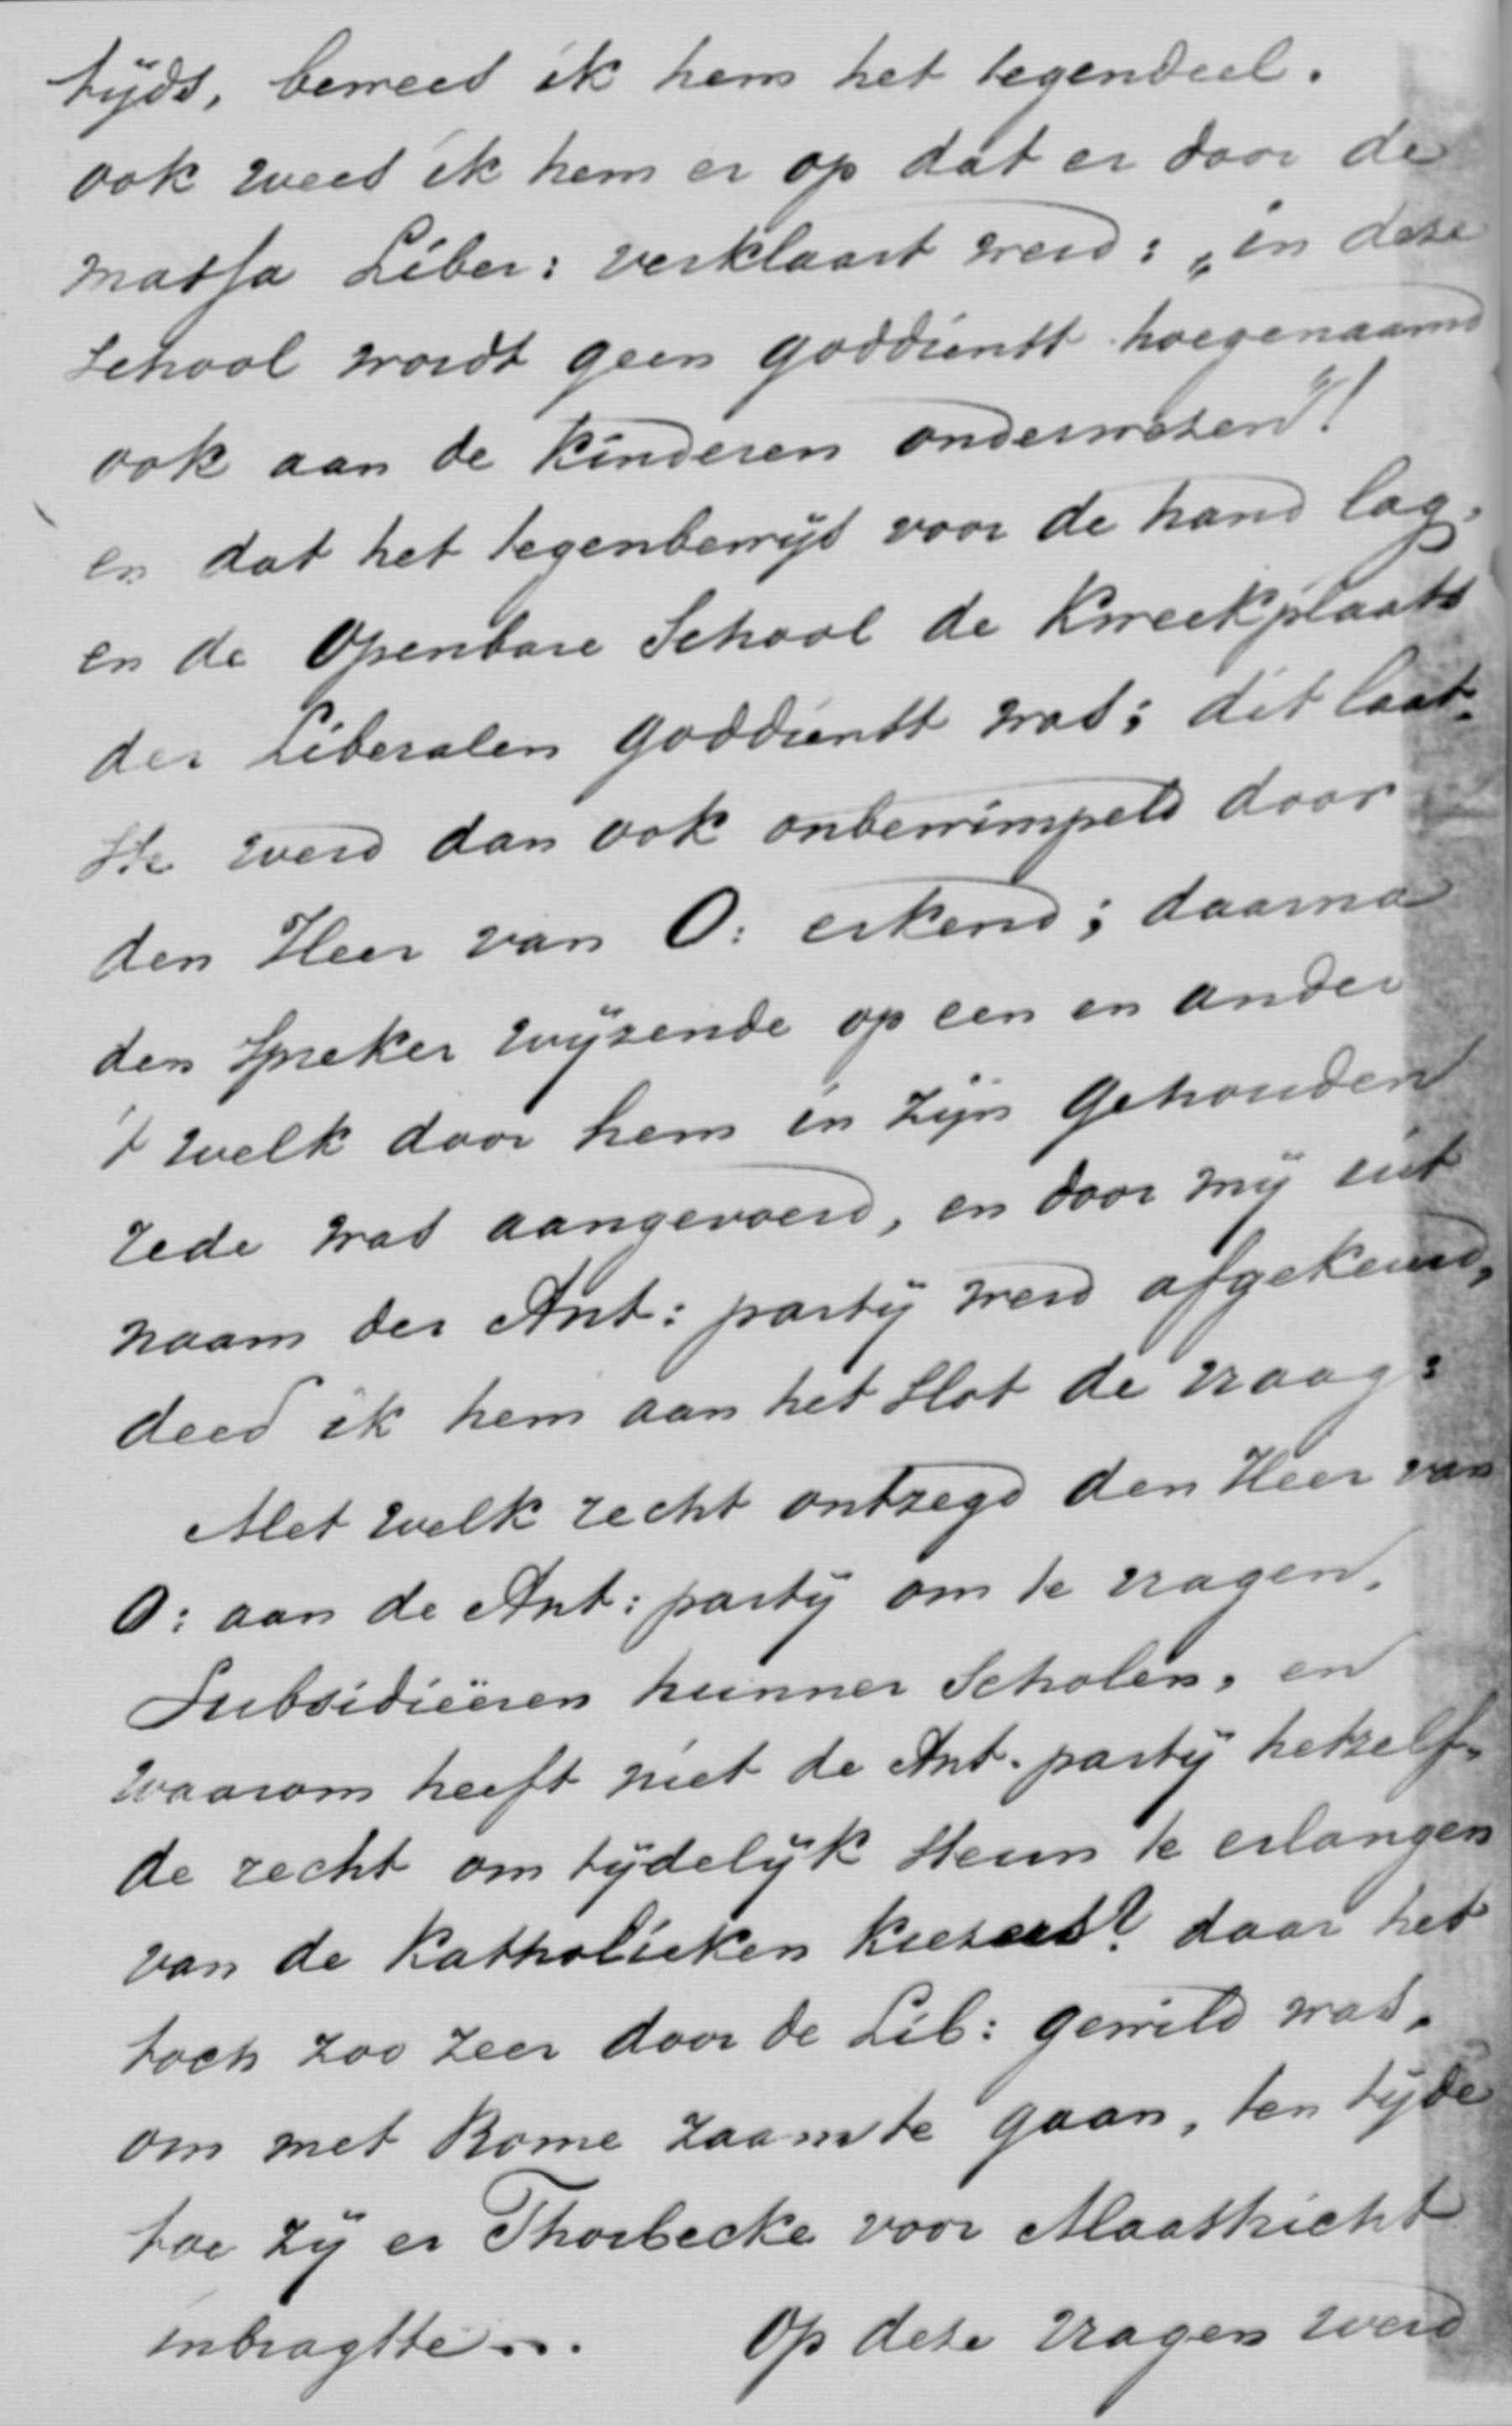 tijds, bewees ik hem het tegendeel.
ook wees ik hem er op dat er door de
massa Liber: verklaart werd: „in deze
School wordt geen godsdienst hoegenaamd
ook aan de Kinderen onderwezen"!
en dat het tegenbewijs voor de hand lag,
en de Openbare School de Kweekplaats
der Liberalen godsdienst was; dit laat-
ste werd dan ook onbewimpeld door
den Heer van O: erkend; daarna
den Spreker wijzende op een en ander
't welk door hem in zijn gehouden
rede was aangevoerd, en door mij uit
naam der Ant: partij werd afgekeurd,
deed ik hem aan het Slot de vraag:
Met welk recht ontzegd den Heer van
O: aan de Ant: partij om te vragen,
Subsidiëeren hunner Scholen, en
waarom heeft niet de Ant. partij hetzelf-
de recht om tijdelijk Steun te erlangen
van de Katholieken kiezers? daar het
toch zoo zeer door de Lib: gewild was,
om met Rome zaam te gaan, ten tijde
toe zij er Thorbecke voor Maastricht
inbragtte...      Op deze vragen werd